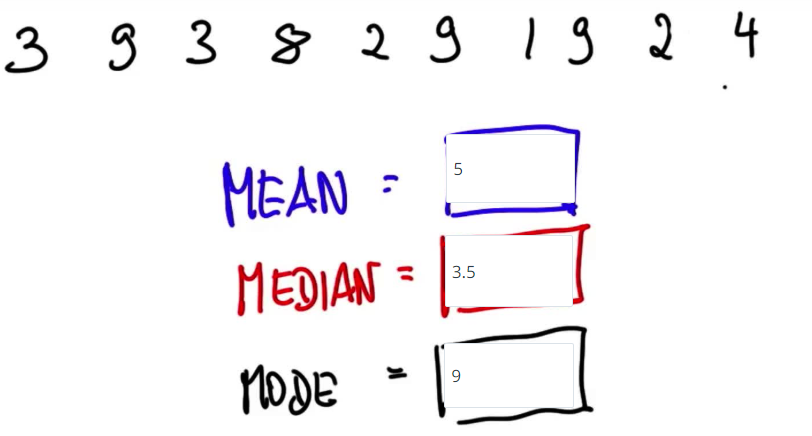 3 9 3 8 2 9 1 9 2 4
MEAN = 5
MEDIAN = 3.5
MODE = 9